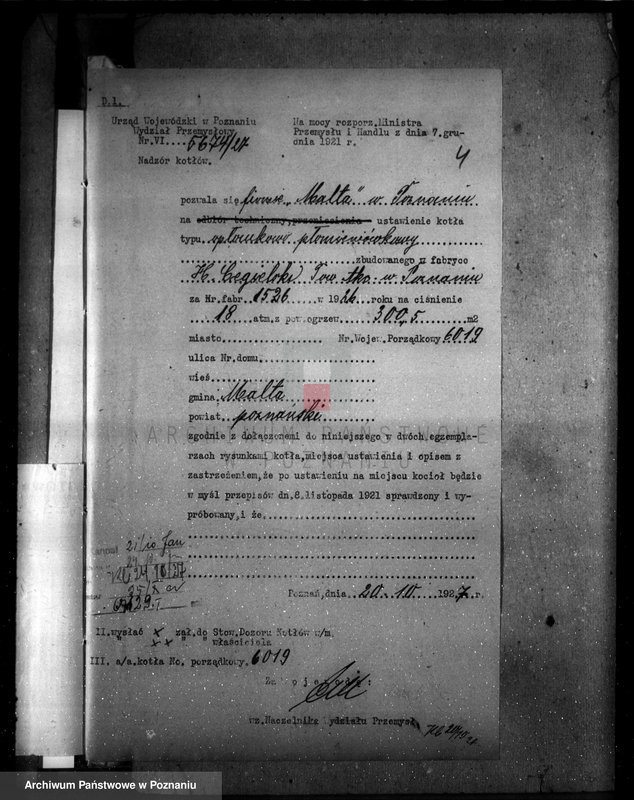 D.1.
Urząd Wojewódzki w Poznaniu
Wydział Przemysłowy
Nr.VI....5674/27
Nadzór kotłów.
Na mocy rozporz.Ministra
Przemysłu i Handlu z dnia 7.gru-
dnia 1921 r.
4
pozwala się firmie „Malta" w Poznaniu
na odbiór techniczny,przeniesienie ustawienie kotła
typu opłomkowo płomieniówkowy
zbudowanego w fabryce
H. Cegielski Tow. Akc. w Poznaniu
za Nr.fabr.1526 w 1926 roku na ciśnienie
18 atm.z pow.ogrzew. 300,5 m2
miasto Nr.Wojew.Porządkowy 6019
ulica Nr.domu
wieś
gmina Malta
powiat poznański
zgodnie z dołączonemi do niniejszego w dwóch egzempla-
rzach rysunkami kotła,miejsca ustawienia i opisem z
zastrzeżeniem,że po ustawieniu na miejscu kocioł będzie
w myśl przepisów dn.8.listopada 1921 sprawdzony i wy-
próbowany,i że
ARCHIWUM PAŃSTWOWE
W POZNANIU
21/10 Jan
24/10/27
25/X
Poznań,dnia 20.10.1927 r.
II.wysłać x zał.do Stow.Dozoru Kotłów w/m.
" xx " właściciela
III. a/a.kotła No. porządkowy.6019
Za Wojewodę:
wz.Naczelnika Wydziału Przemysł.
Archiwum Państwowe w Poznaniu